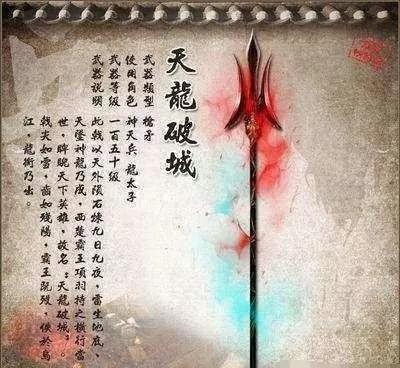 天龍破城
武器類型 槍矛
使用角色 神天兵 龍太子
武器等級 一百五十級
武器說明 此戟以天外隕石煉九日九夜，雷生地底，
天墜神龍乃成，西楚霸王項羽持之橫行當
世，睥睨天下英雄，故名：天龍破城"。
戟尖如雪，齒如殘陽，霸王既歿，佚於烏
江，龍銜乃出。